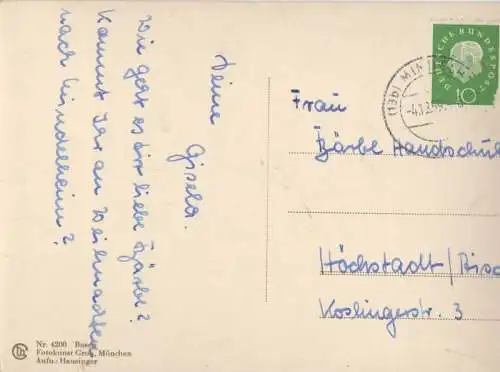 Wie geht es dir liebe Bärbe?
Kommt Ihr an Weihnachten
nach Mindelheim?
Deine
Gisela.
DEUTSCHE BUNDESPOST
10
(13b) MIN
Frau
Bärbe Handschu
Höchstadt/
Koslingerstr. 3
Nr. 4200
Fotokunst Groß, München
Aufn.: Hausinger